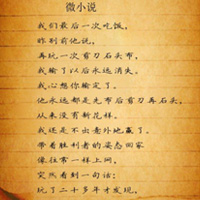 微小说
我们最后一次吃饭，
昨别前他说，
再玩一次剪刀石头布，
我输了以后永远消失。
我心想你输定了。
他永远都是先布后剪刀再石头，
从来没有新花样。
我还是不出意外地赢了。
带着胜利者的姿态回家
像往常一样上网，
突然看到一句话：
玩了二十多年才发现，